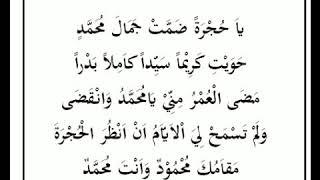 ياَ حُجْرَةً ضَمَّتْ جَمَالَ مُحَمَّدٍ
حَوَيْتِ كَرِيْماً سَيِّداً كَامِلاً بَدْراً
مَضَى الْعُمْرُ مِنِّيْ يَامُحَمَّدُ وَانْقَضَى
وَلَمْ تَسْمَحْ لِيَ اْلاَيَّامُ اَنْ اَنْظُرَ الْحُجْرَةَ
مَقَامُكَ مَحْمُوْدٌ وَاَنْتَ مُحَمَّدٌ